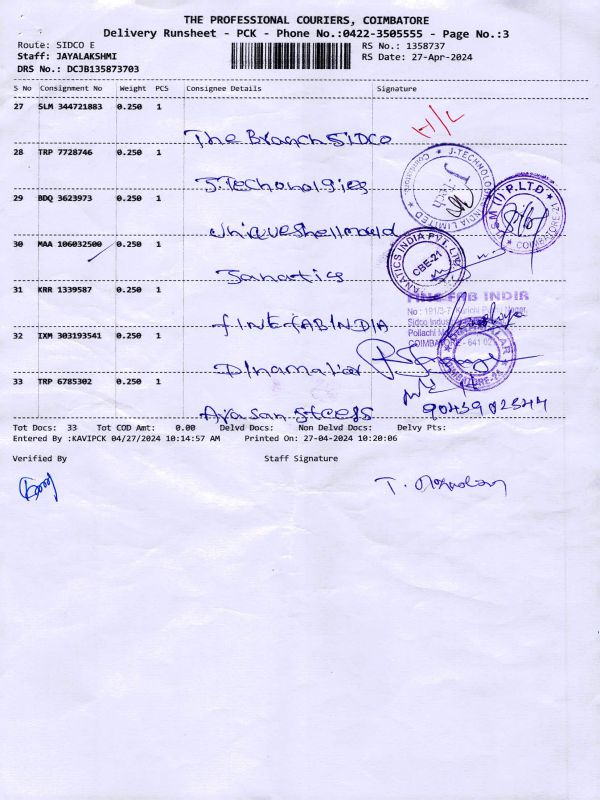 THE PROFESSIONAL COURIERS, COIMBATORE
Delivery Runsheet - PCK - Phone No.:0422-3505555 - Page No.:3
Route: SIDCO E
RS No.: 1358737
Staff: JAYALAKSHMI
RS Date: 27-Apr-2024
DRS No.: DCJB135873703
S No Consignment No Weight PCS Consignee Details Signature
27 SLM 344721883 0.250 1
H/L
The Branch SIDCO
28 TRP 7728746 0.250 1
J.Techonologies
J-TECHNOLOGIES INDIA LIMITED
29 BDQ 3623973 0.250 1
Unique Shell mould
M (I) P.LTD ★ COIMBATORE-21
30 MAA 106032500 0.250 1
Janatics
JANATICS INDIA PVT. LTD.
CBE-21
31 KRR 1339587 0.250 1
FINE FAB INDIA
FINE FAB INDIA
No : 191/3-7,
Sidco Indus
COIMBATORE - 641 021
32 IXM 303193541 0.250 1
Dinamalar
33 TRP 6785302 0.250 1
Ayasan steels
9043902344
Tot Docs: 33 Tot COD Amt: 0.00 Delvd Docs: Non Delvd Docs: Delvy Pts:
Entered By :KAVIPCK 04/27/2024 10:14:57 AM Printed On: 27-04-2024 10:20:06
Verified By Staff Signature